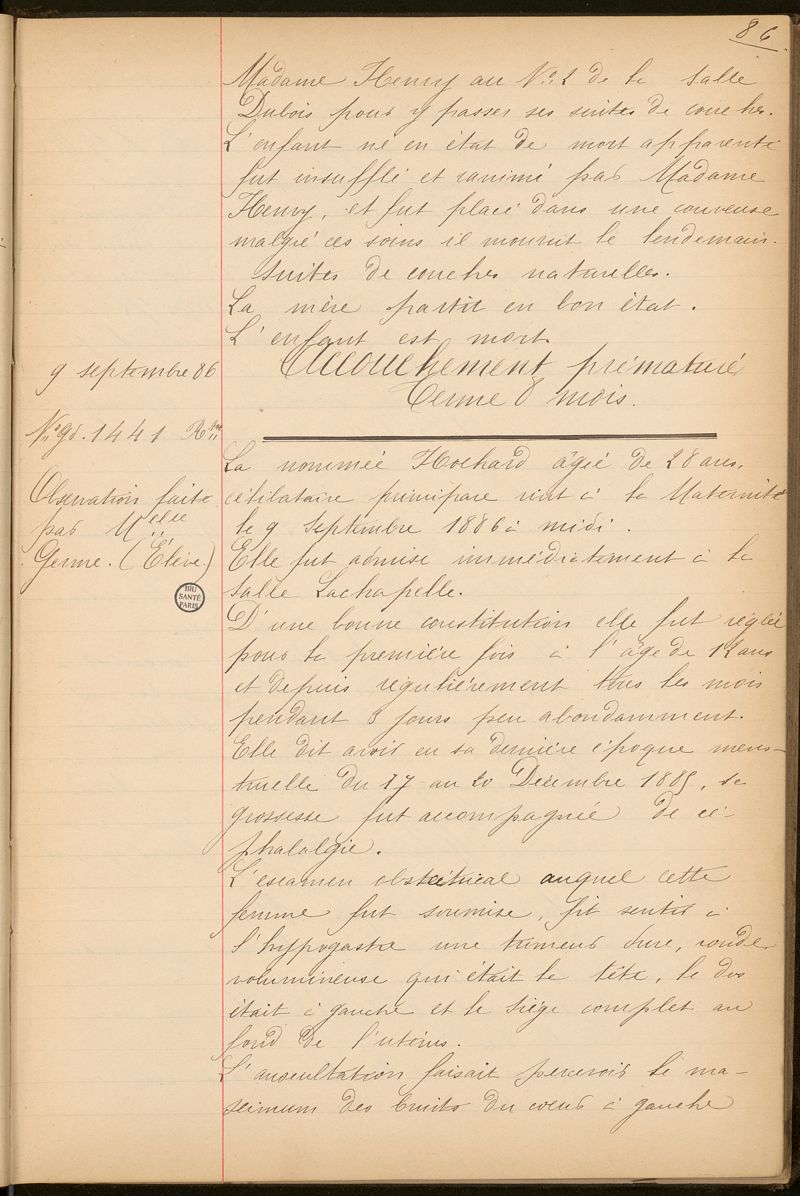 86
Madame Henry au N° 2 de la salle
Dubois pour y passer ses suites de couches.
L'enfant né en état de mort apparente
fut insufflé et ranimé par Madame
Henry, et fut placé dans une couveuse
malgré ces soins il mourut le lendemain.
suites de couches naturelles.
La mère partit en bon état.
L'enfant est mort.
Accouchement prématuré
Terme 8 mois.
9 septembre 86
N° 1441
Observation faite
par Melle
Germe. (Élève.)
BIU
SANTÉ
PARIS
La nommée Hochard âgée de 28 ans,
célibataire primipare vint à la Maternité
le 9 septembre 1886 à midi.
Elle fut admise immédiatement à la
salle Lachapelle.
D'une bonne constitution elle fut réglée
pour la première fois à l'âge de 12 ans
et depuis régulièrement tous les mois
pendant 3 jours peu abondamment.
Elle dit avoir eu sa dernière époque mens-
truelle du 17 au 20 Décembre 1885, sa
grossesse fut accompagnée de cé-
phalalgie.
L'examen obstétrical auquel cette
femme fut soumise, fit sentir à
l'hypogastre une tumeur dure, ronde
volumineuse qui était la tête, le dos
était à gauche et le siège complet au
fond de l'utérus.
L'auscultation faisait percevoir le ma-
ximum des bruits du cœur à gauche